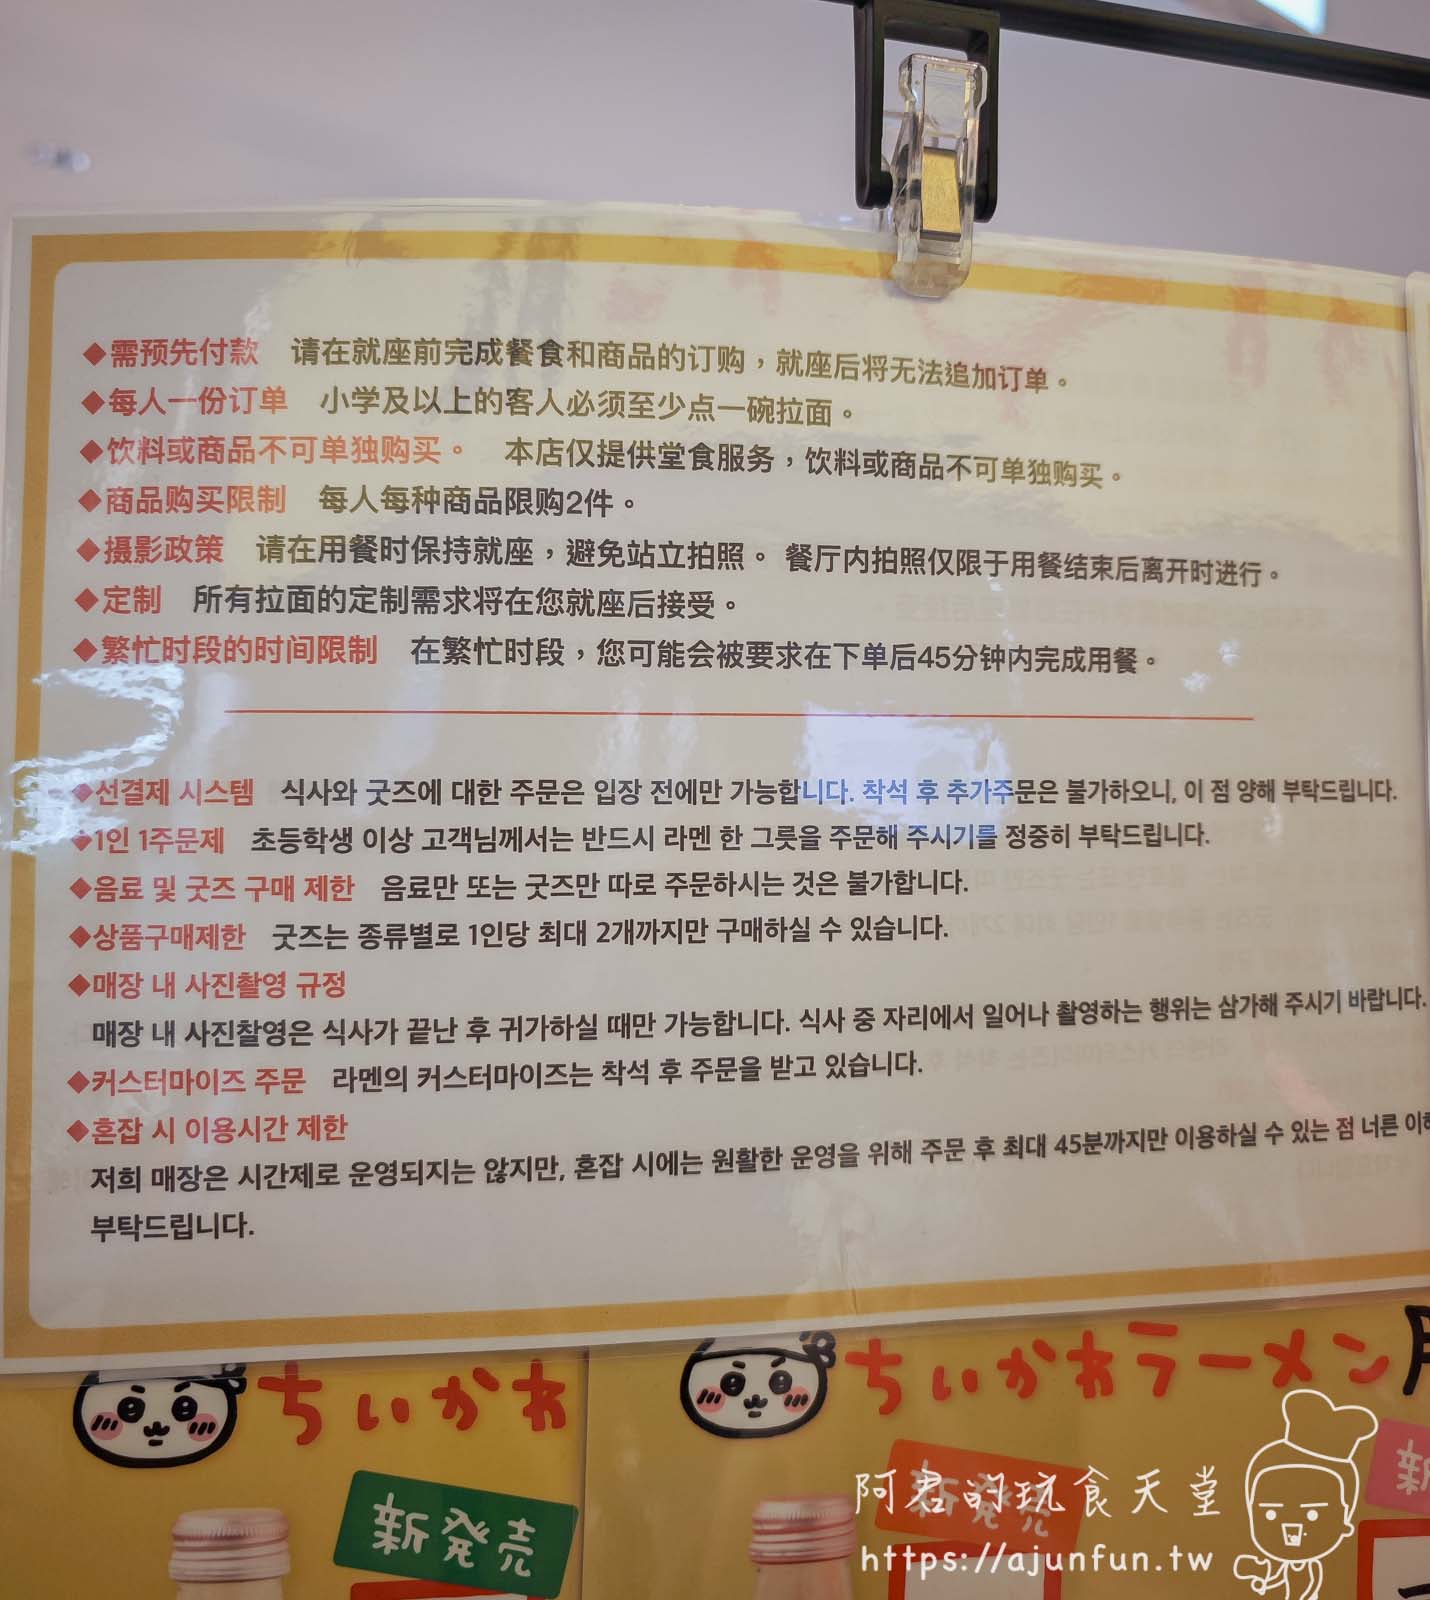 ◆需预先付款　请在就座前完成餐食和商品的订购，就座后将无法追加订单。
◆每人一份订单　小学及以上的客人必须至少点一碗拉面。
◆饮料或商品不可单独购买。　本店仅提供堂食服务，饮料或商品不可单独购买。
◆商品购买限制　每人每种商品限购2件。
◆摄影政策　请在用餐时保持就座，避免站立拍照。 餐厅内拍照仅限于用餐结束后离开时进行。
◆定制　所有拉面的定制需求将在您就座后接受。
◆繁忙时段的时间限制　在繁忙时段，您可能会被要求在下单后45分钟内完成用餐。
◆선결제 시스템　식사와 굿즈에 대한 주문은 입장 전에만 가능합니다. 착석 후 추가주문은 불가하오니, 이 점 양해 부탁드립니다.
◆1인 1주문제　초등학생 이상 고객님께서는 반드시 라멘 한 그릇을 주문해 주시기를 정중히 부탁드립니다.
◆음료 및 굿즈 구매 제한　음료만 또는 굿즈만 따로 주문하시는 것은 불가합니다.
◆상품구매제한　굿즈는 종류별로 1인당 최대 2개까지만 구매하실 수 있습니다.
◆매장 내 사진촬영 규정
매장 내 사진촬영은 식사가 끝난 후 귀가하실 때만 가능합니다. 식사 중 자리에서 일어나 촬영하는 행위는 삼가해 주시기 바랍니다.
◆커스터마이즈 주문　라멘의 커스터마이즈는 착석 후 주문을 받고 있습니다.
◆혼잡 시 이용시간 제한
저희 매장은 시간제로 운영되지는 않지만, 혼잡 시에는 원활한 운영을 위해 주문 후 최대 45분까지만 이용하실 수 있는 점 너른
부탁드립니다.
ちいかわ
ちいかわラーメン
新発売
新発売
阿君的玩食天堂
https://ajunfun.tw